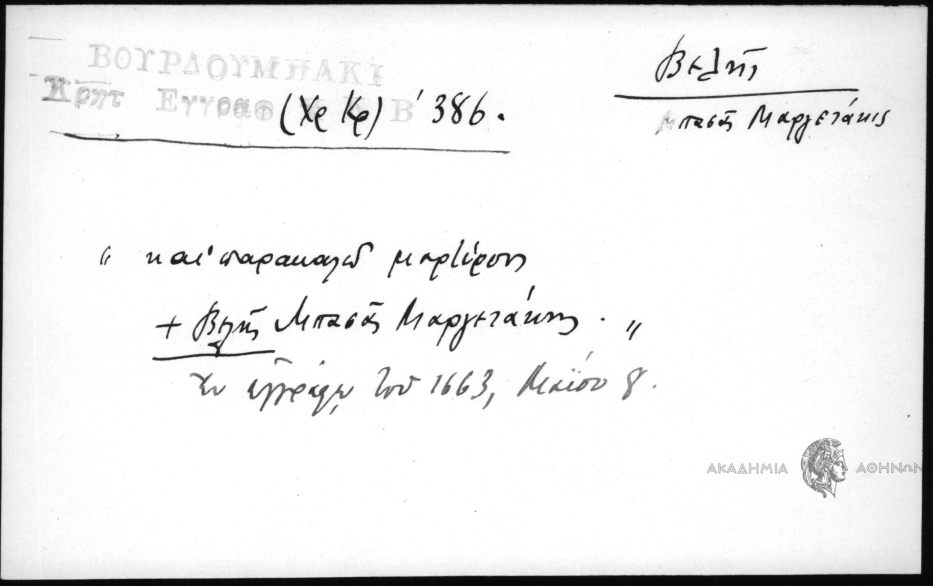 ΒΟΥΡΔΟΥΜΠΑΚΙ
Κρητ Εγγραφ Β
(Χρ Κρ) 386.
Βελῆς
Μπασᾶς Μαργετάκις
“ καὶ παρακαλῶ μαρτύρους
+ Βελῆς Μπασᾶς Μαργετάκης. ”
Ἐν ἐγγράφῳ τοῦ 1663, Μαΐου 8.
ΑΚΑΔΗΜΙΑ ΑΘΗΝΩΝ